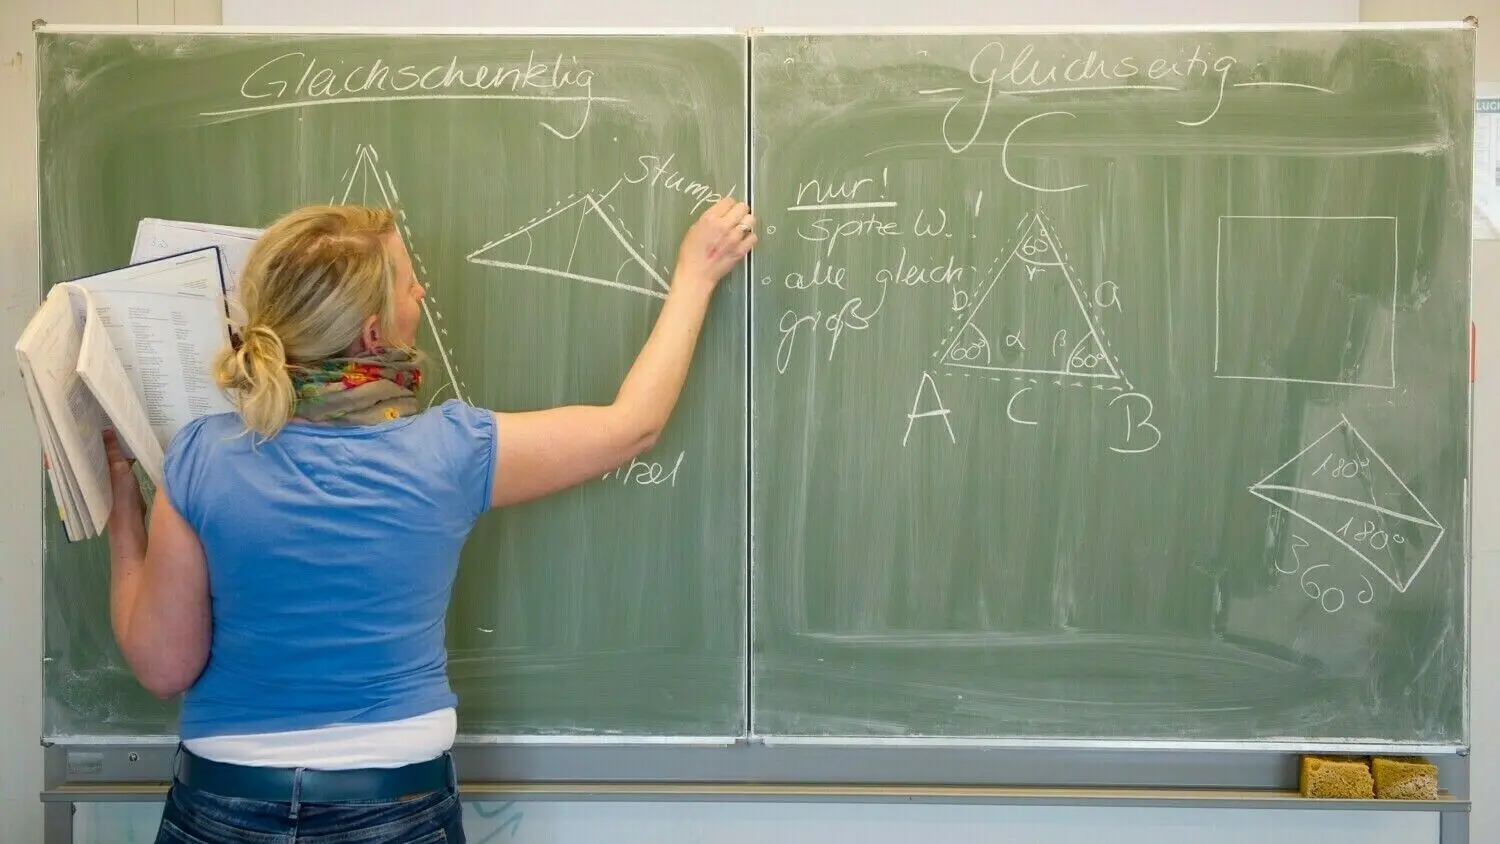 Gleichschenklig
Stumpf
Gleichseitig
C
nur!
spitze W.!
alle gleich
groß
60°
γ
b
a
60°
α
β
60°
A
c
B
180°
180°
360°
LUC